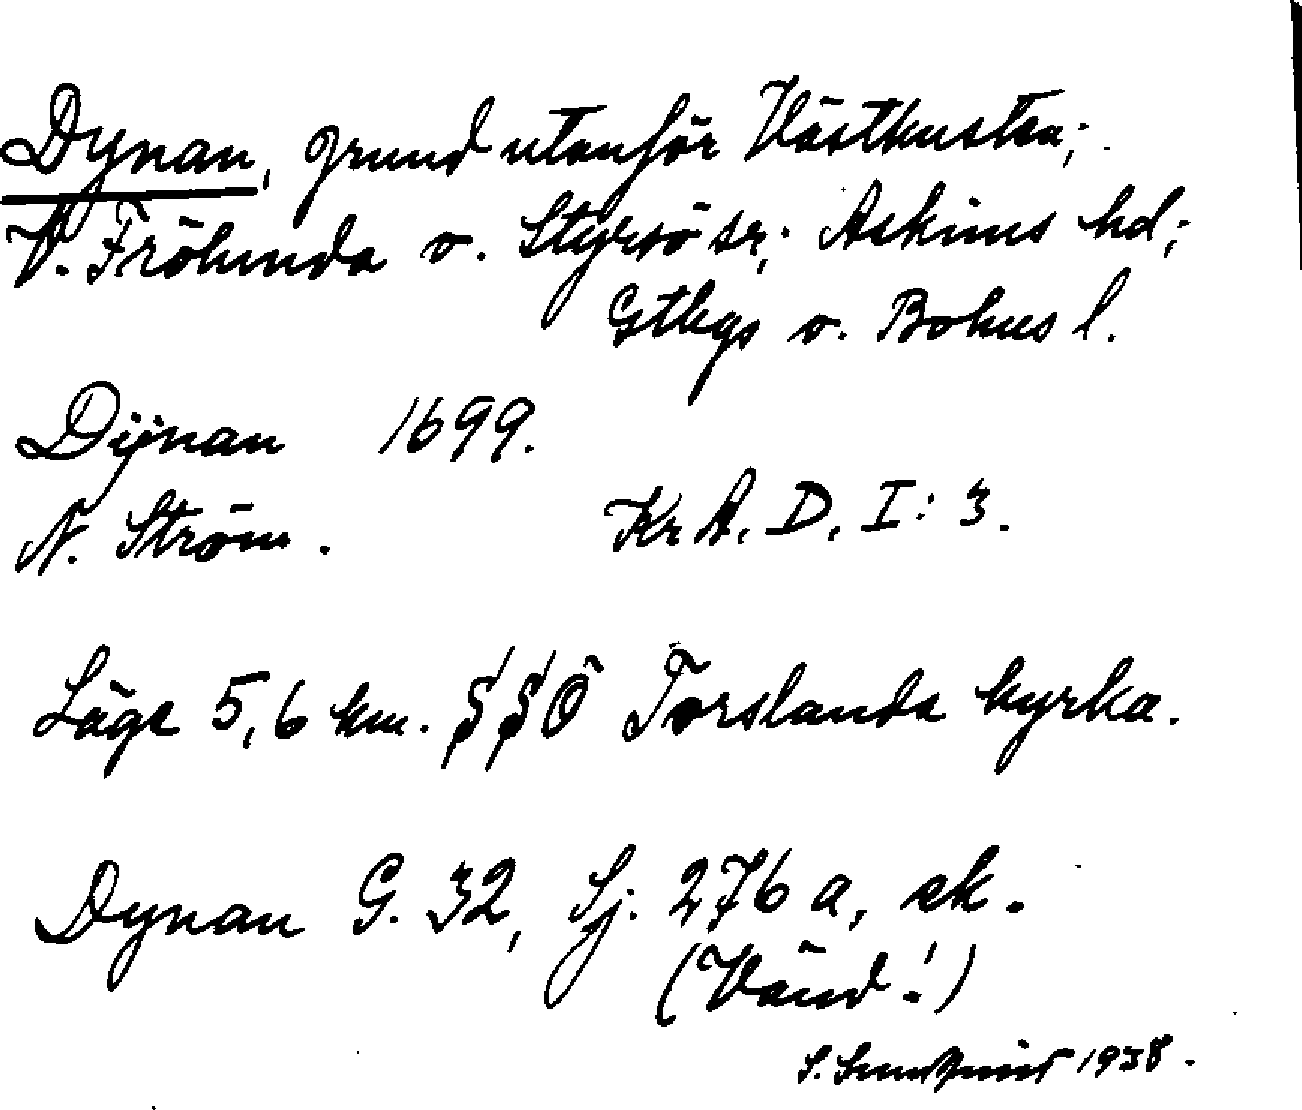 Dynan, grund utanför Västkusten;
V. Frölunda o. Styrsö sr; Askims hd;
Gtbgs o. Bohus l.
Dÿnan 1699.
N. Ström. KrA. D. I: 3.
Läge 5,6 km. SSÖ Torslanda kyrka.
Dynan G. 32, Sj. 276 a, ek.
(Vänd!)
S. Sundqvist 1938.